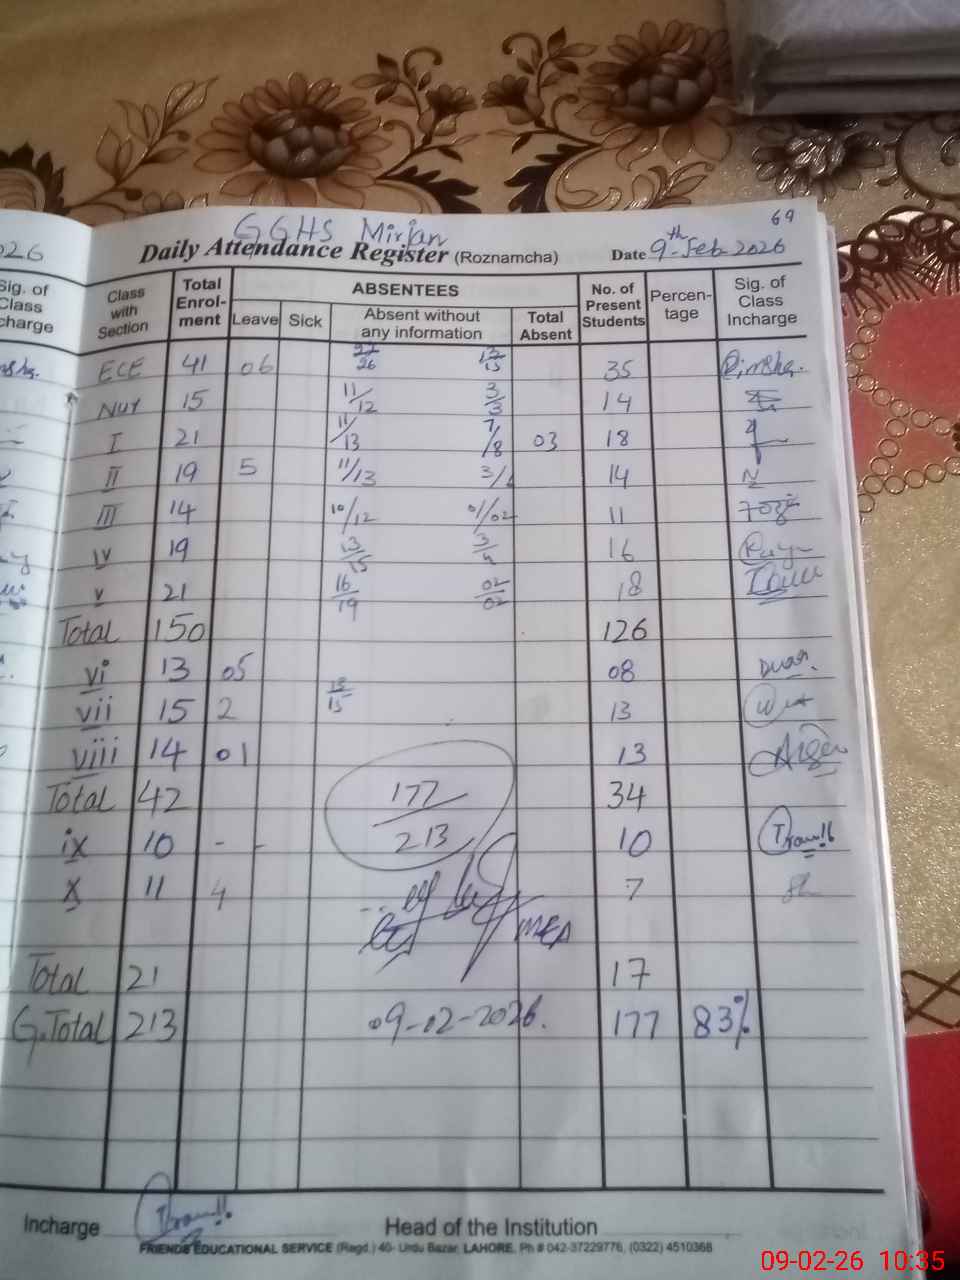 69
GGHS Mirjan
Daily Attendance Register (Roznamcha) Date 9th Feb 2026
026
Sig. of Class charge
Class with Section Total Enrol-ment ABSENTEES No. of Present Students Percen-tage Sig. of Class Incharge
Leave Sick Absent without any information Total Absent
ECE 41 06 22/26 12/15 35 Rimsha.
Nur 15 11/12 3/3 14
I 21 11/13 7/8 03 18
II 19 5 11/13 3/ 14
III 14 10/12 01/02 11
IV 19 13/15 3/4 16
V 21 16/19 02/02 18
Total 150 126
vi 13 05 08
vii 15 2 13/15 13
viii 14 01 13
Total 42 177/213 34
ix 10 - - 10
X 11 4 7
MEA
Total 21 17
G.Total 213 09-02-2026. 177 83%
Incharge Head of the Institution
FRIENDS EDUCATIONAL SERVICE (Regd.) 40- Urdu Bazar, LAHORE. Ph # 042-37229776, (0322) 4510368
09-02-26 10:35